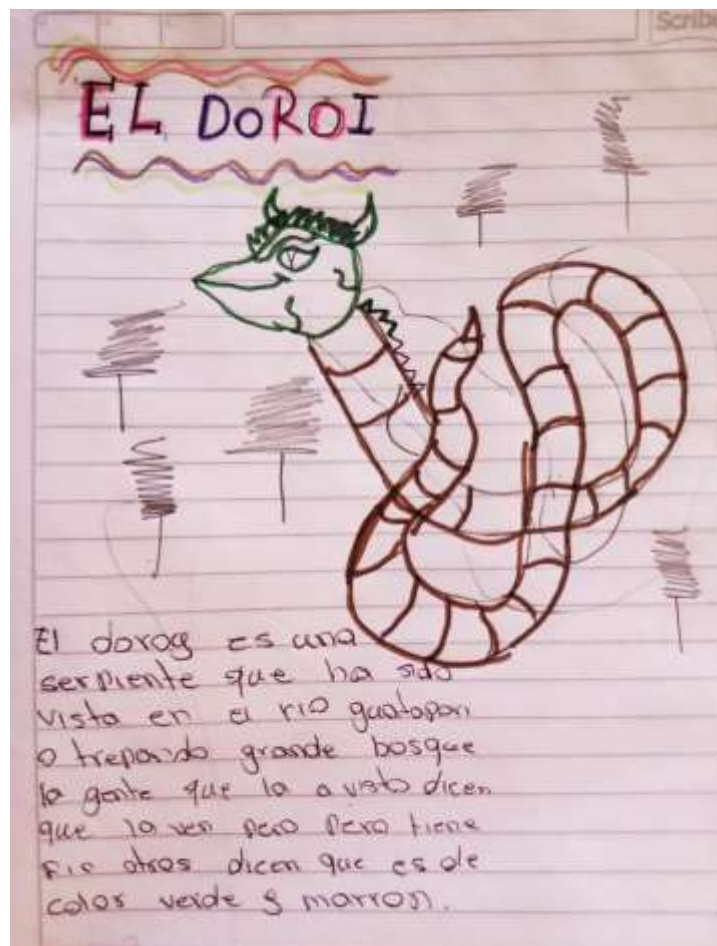 Scribe
EL DOROI
El doroy es una
serpiente que ha sido
vista en el rio guatapori
o trepando grande bosque
la gente que la a visto dicen
que la ven pero pero tiene
otros dicen que es de
color verde y marron.